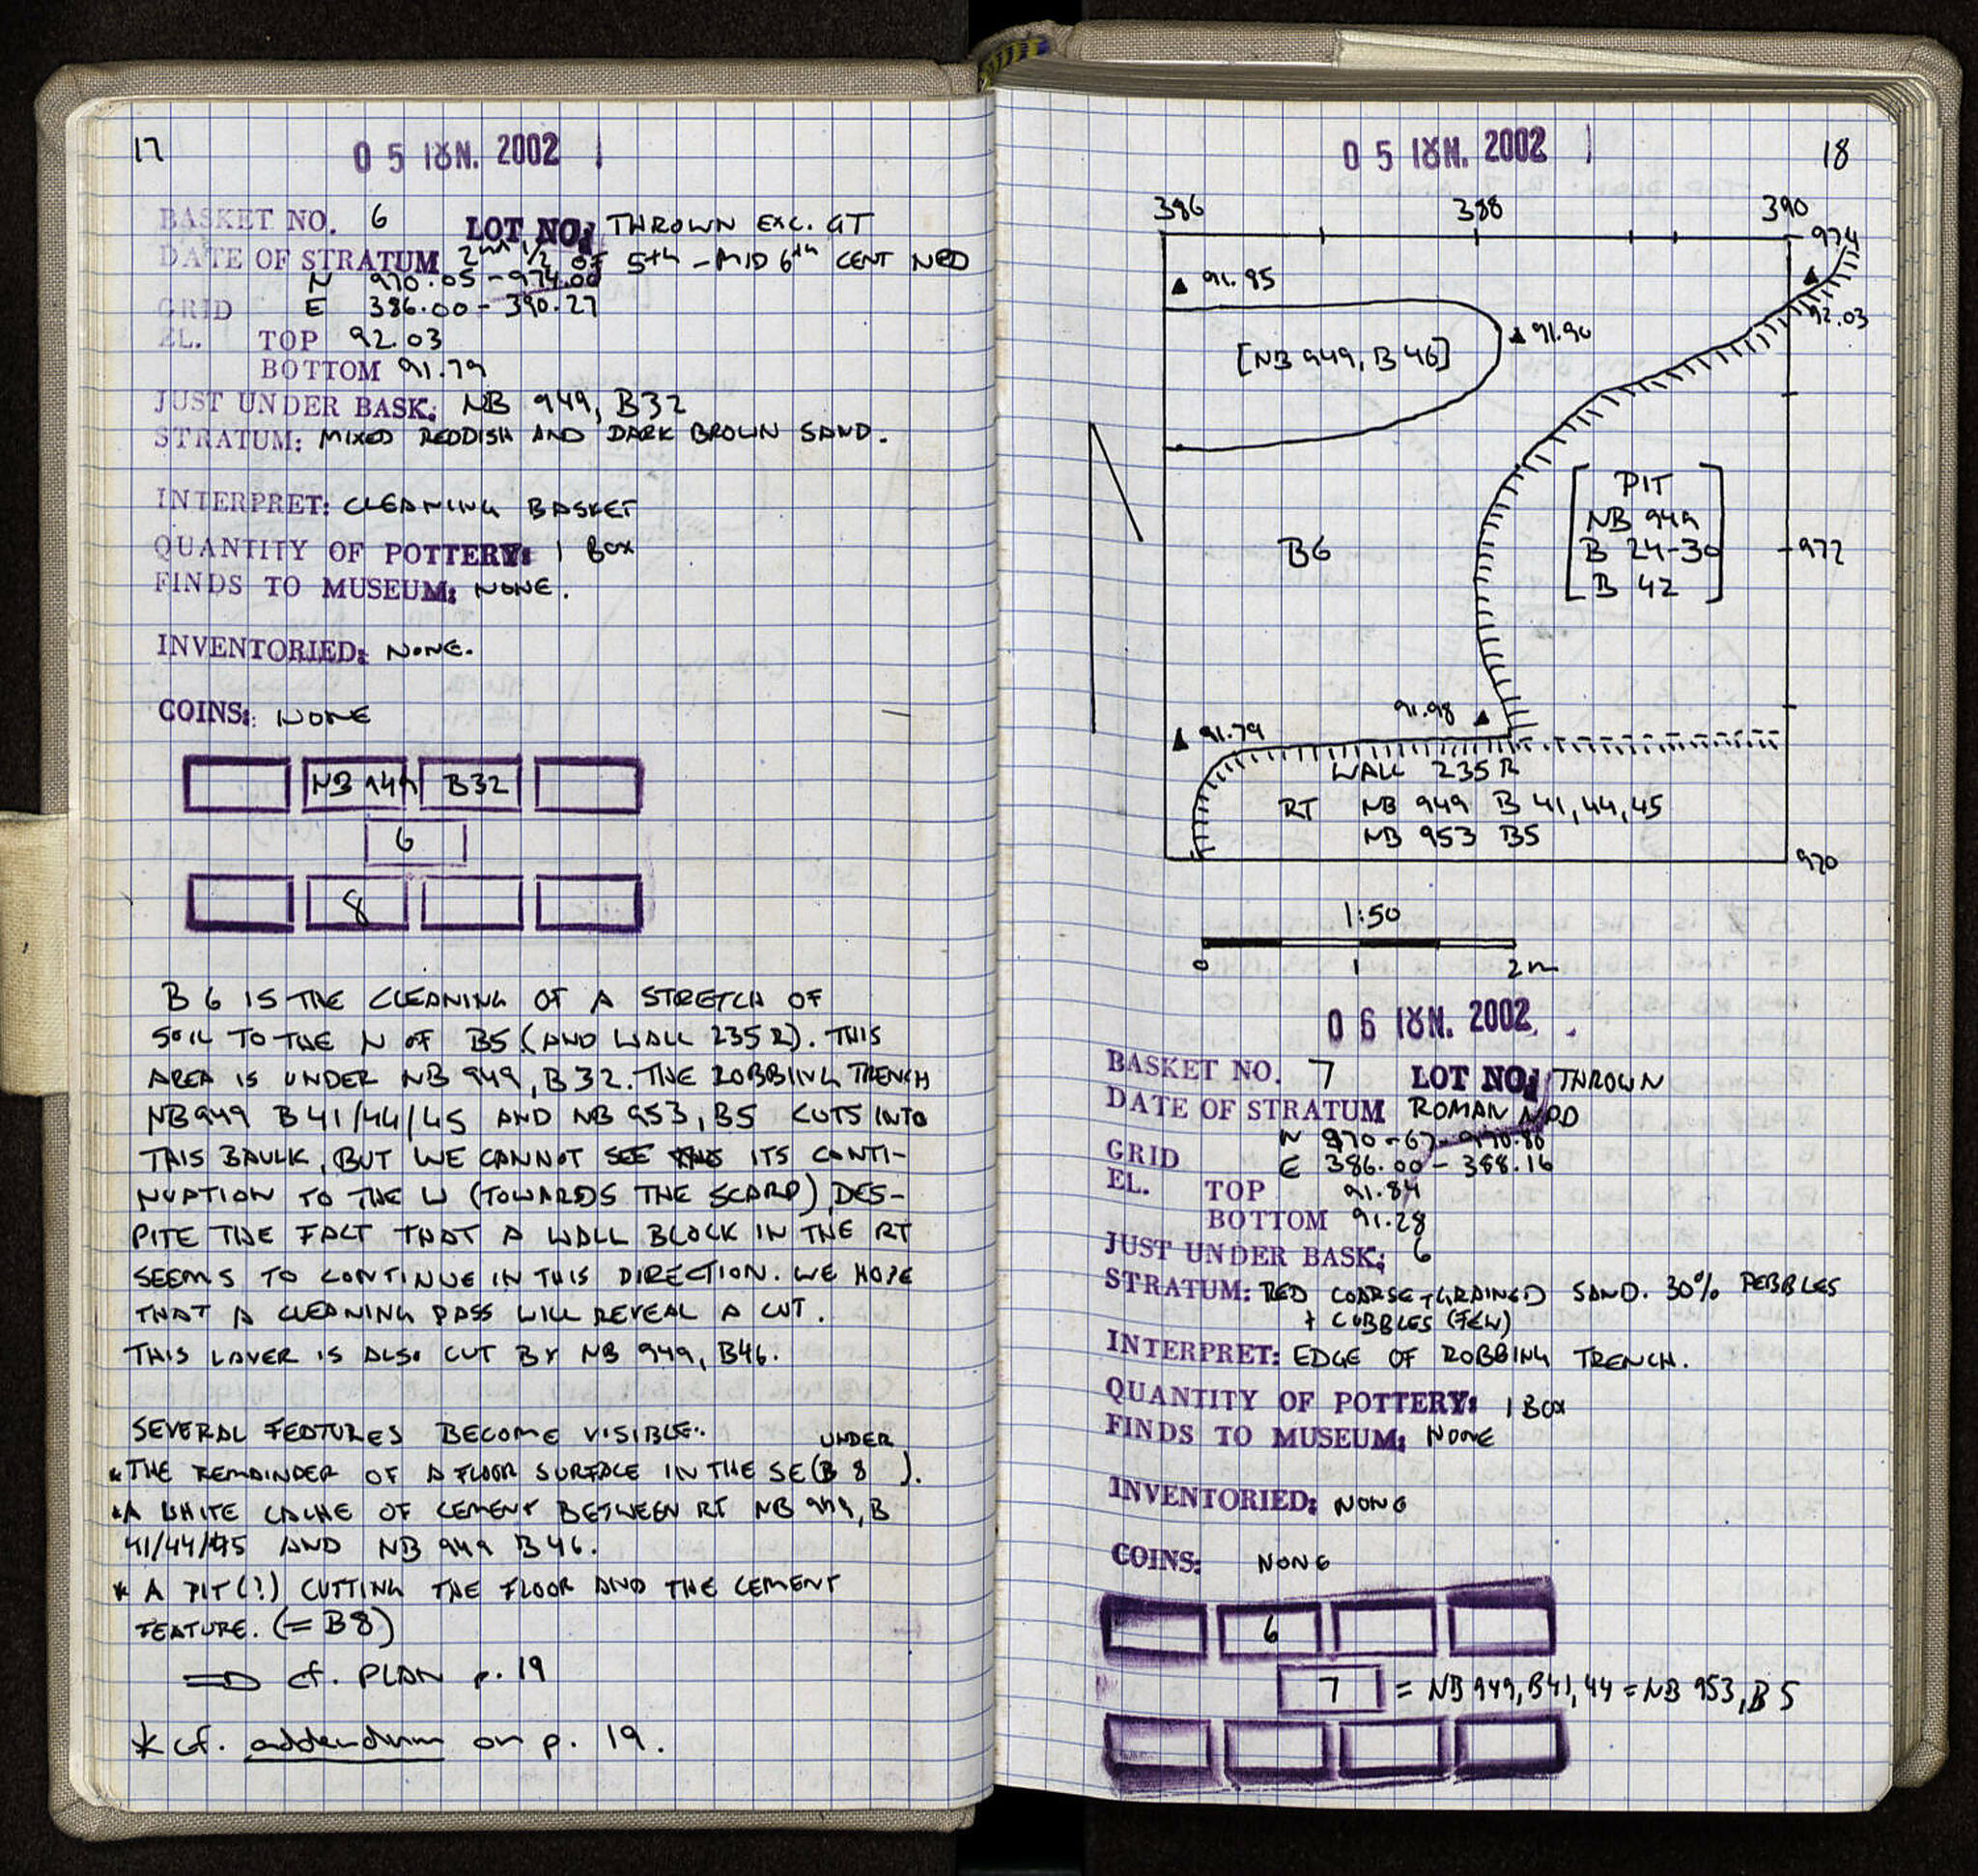 17
05 ΙΟΥΝ. 2002
BASKET NO. 6 LOT NO: THROWN EXC. GT
DATE OF STRATUM 2nd 1/2 OF 5th - MID 6th CENT NPD
N 970.05 - 974.00
GRID E 386.00 - 390.27
EL. TOP 92.03
BOTTOM 91.79
JUST UNDER BASK: NB 949, B32
STRATUM: MIXED REDDISH AND DARK BROWN SAND.
INTERPRET: CLEANING BASKET
QUANTITY OF POTTERY: 1 BOX
FINDS TO MUSEUM: NONE.
INVENTORIED: NONE.
COINS: NONE
NB 949 B32
6
8
B 6 IS THE CLEANING OF A STRETCH OF
SOIL TO THE N OF B5 (AND WALL 235 R). THIS
AREA IS UNDER NB 949, B32. THE ROBBING TRENCH
NB 949 B 41/44/45 AND NB 953, B5 CUTS INTO
THIS BAULK, BUT WE CANNOT SEE ITS CONTI-
NUATION TO THE W (TOWARDS THE SCARP), DES-
PITE THE FACT THAT A WALL BLOCK IN THE RT
SEEMS TO CONTINUE IN THIS DIRECTION. WE HOPE
THAT A CLEANING PASS WILL REVEAL A CUT.
THIS LAYER IS ALSO CUT BY NB 949, B46.
SEVERAL FEATURES BECOME VISIBLE:
UNDER
*THE REMAINDER OF A FLOOR SURFACE IN THE SE (B 8 ).
*A WHITE CACHE OF CEMENT BETWEEN RT NB 949, B
41/44/45 AND NB 949 B46.
* A PIT(?) CUTTING THE FLOOR AND THE CEMENT
FEATURE. (= B8)
⇒ cf. PLAN p. 19
* cf. addendum on p. 19.
05 ΙΟΥΝ. 2002
18
386 388 390
974
▲ 91.85
92.03
▲ 91.90
[NB 949, B 46]
PIT
NB 949
B 24-30
B 42
B6
972
91.98 ▲
▲ 91.79
WALL 235 R
RT NB 949 B 41, 44, 45
NB 953 B5
970
1:50
0 1 2m
06 ΙΟΥΝ. 2002
BASKET NO. 7 LOT NO: THROWN
DATE OF STRATUM ROMAN NPD
N 970.67 - 970.80
GRID E 386.00 - 388.16
EL. TOP 91.84
BOTTOM 91.28
JUST UNDER BASK: 6
STRATUM: RED COARSE-GRAINED SAND. 30% PEBBLES
+ COBBLES (FEW)
INTERPRET: EDGE OF ROBBING TRENCH.
QUANTITY OF POTTERY: 1 BOX
FINDS TO MUSEUM: NONE
INVENTORIED: NONE
COINS: NONE
6
7 = NB 949, B41, 44 = NB 953, B 5